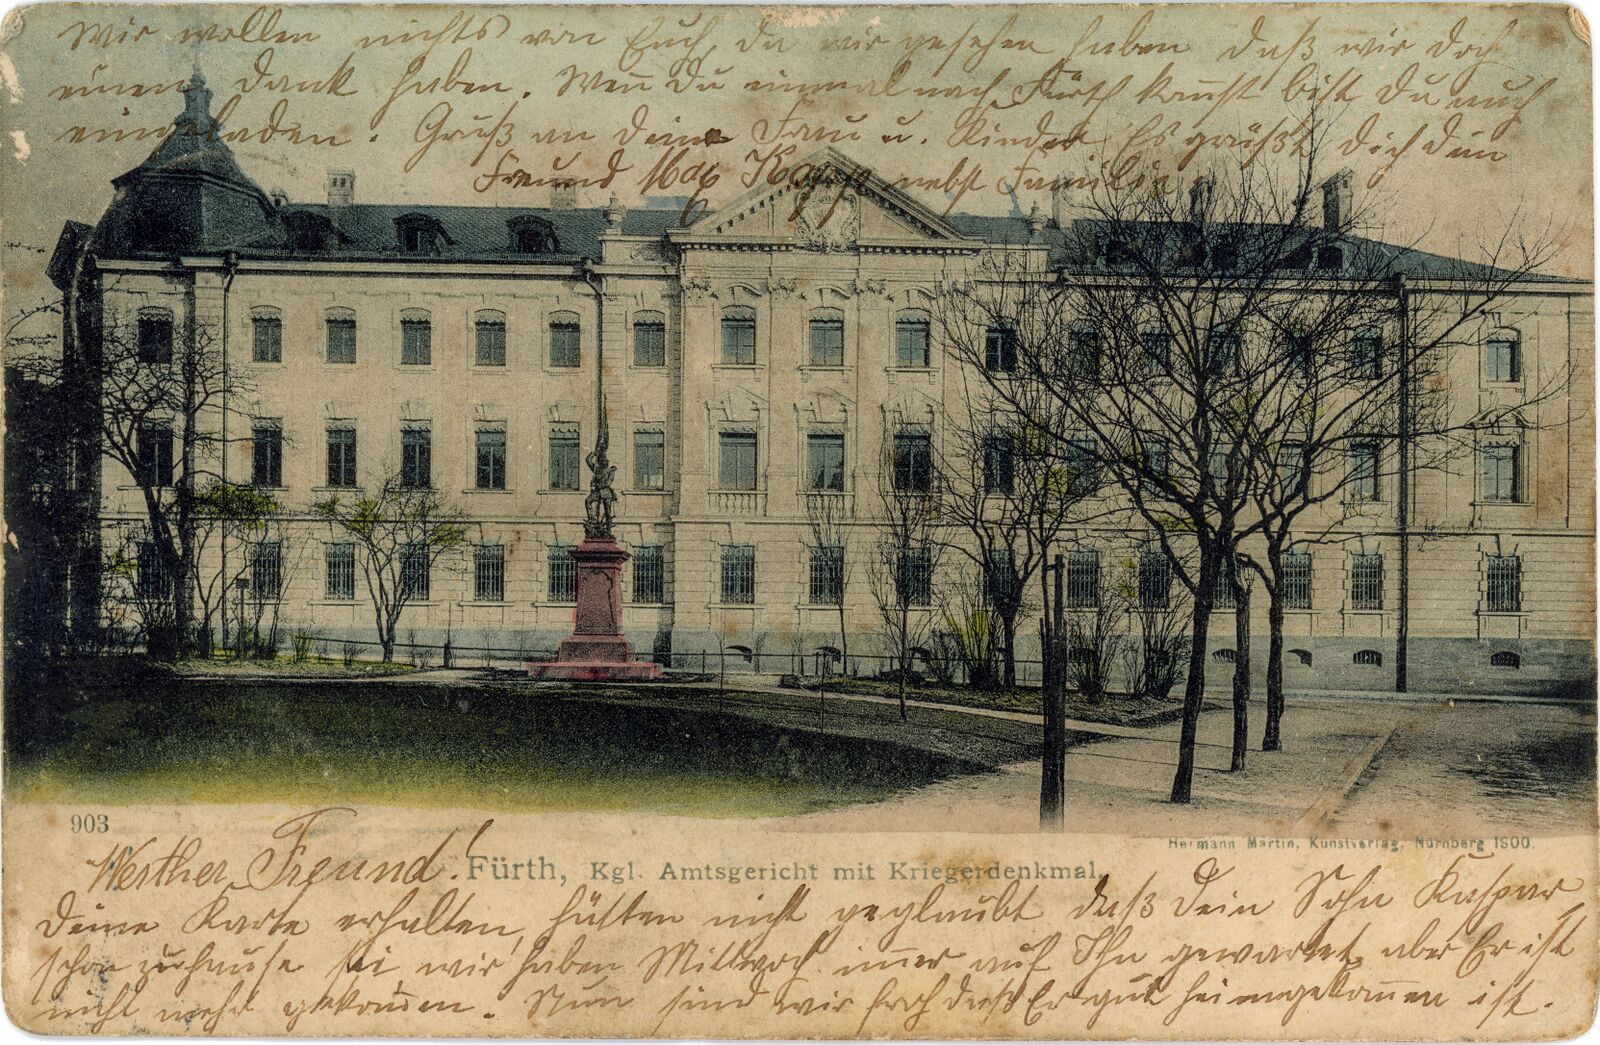 Wir wollen nichts von Euch, da wir gesehen haben daß wir doch
einen Dank haben. Wen̄ Du einmal nach Fürth kom̄st bist Du auch
eingeladen. Gruß an deine Frau u. Kinder Es grüßt Dich dein
Freund Max nebst Familie
903
Hermann Martin, Kunstverlag, Nürnberg 1900.
Werther Freund!
Fürth, Kgl. Amtsgericht mit Kriegerdenkmal.
Deine Karte erhalten, hätten nicht geglaubt daß Dein Sohn Kaspar
schon zuhause sei wir haben Mittwoch im̄er auf Ihn gewartet, aber Er ist
nicht mehr gekom̄en. Nun sind wir froh daß Er gut heimgekom̄en ist.